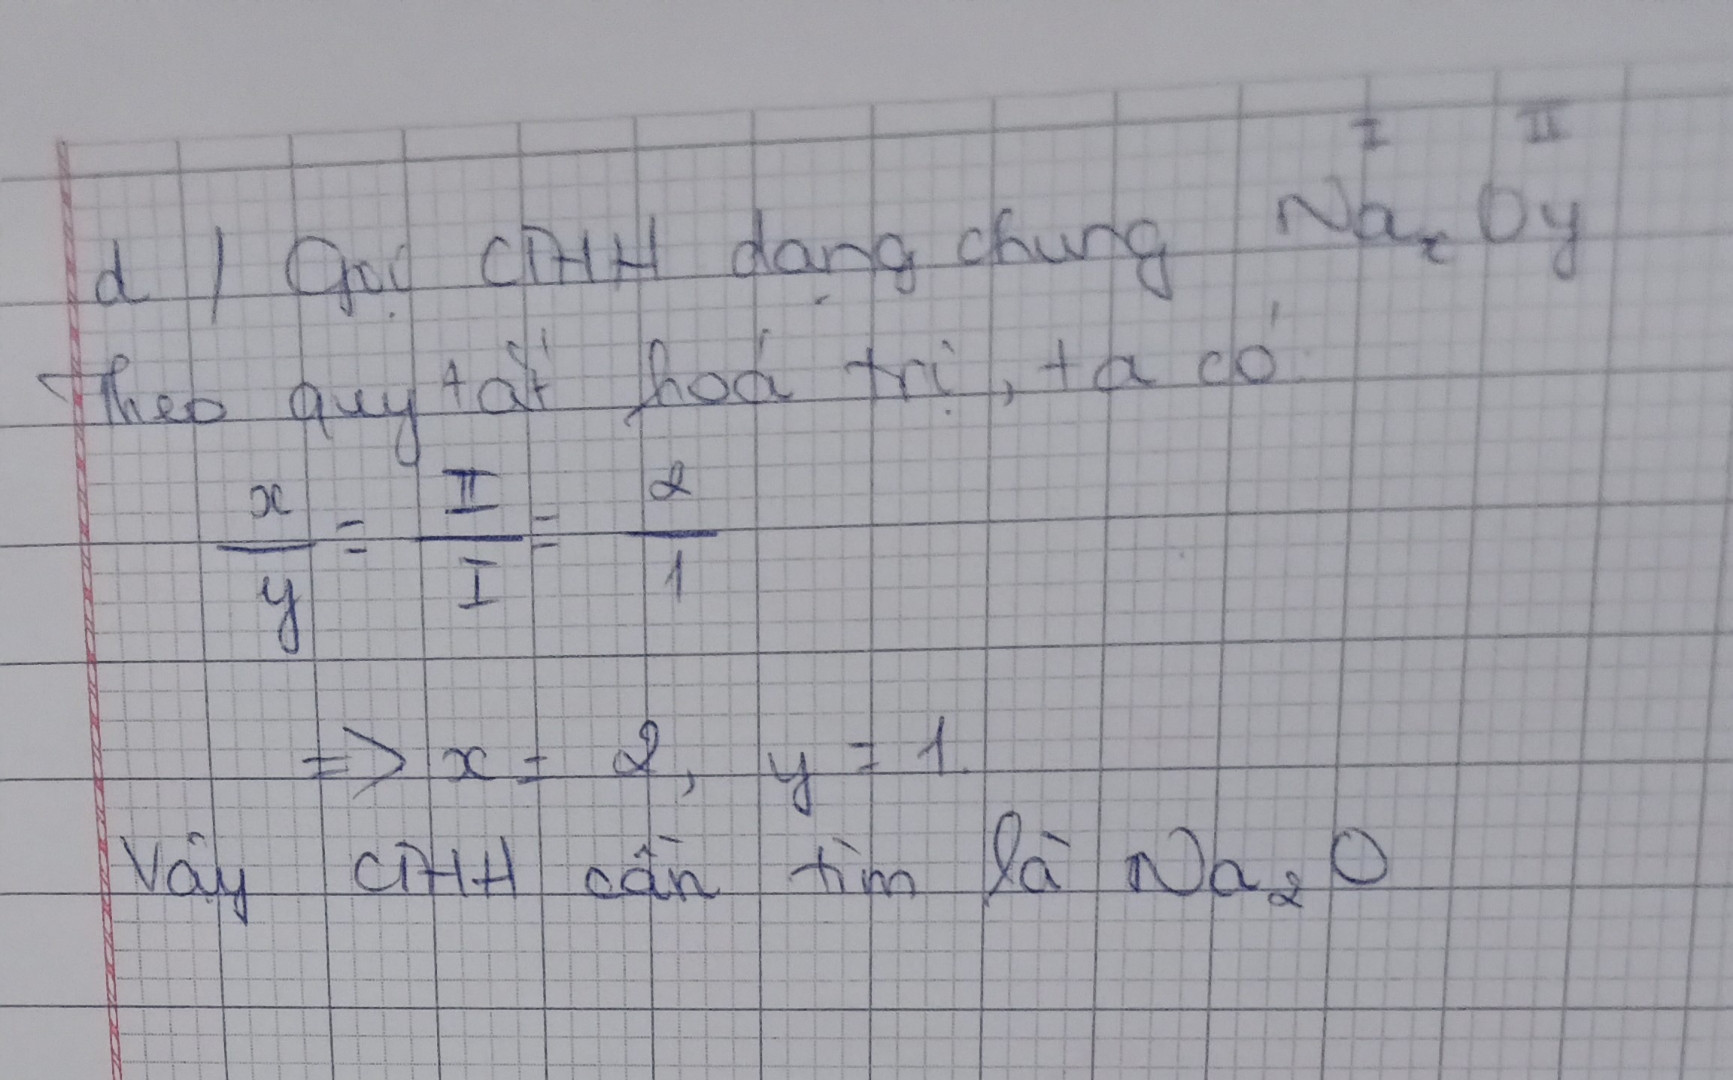 I II
d / Gọi CTHH dạng chung NaxOy
Theo quy tắt hoá trị, ta có
x/y = II/I = 2/1
=> x = 2, y = 1.
Vậy CTHH cần tìm là Na₂O